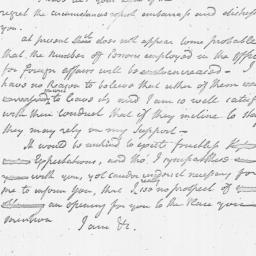 regret the circumstances which embarrass and distress
you.
at present it does not appear to me probable
that the number of Persons employed in the Office
for foreign affairs will be encreased — I
have no Reason to believe that either of them
to leave it and I am so well satisfied
with their conduct that if they incline to stay
they may rely on my Support —
It would be unkind to excite fruitless
Expectations, and tho' I sympathize
with you, yet candor renders it necessary for
me to inform you, that I see no prospect of
an opening for you to the Place you
mention
I am &c.